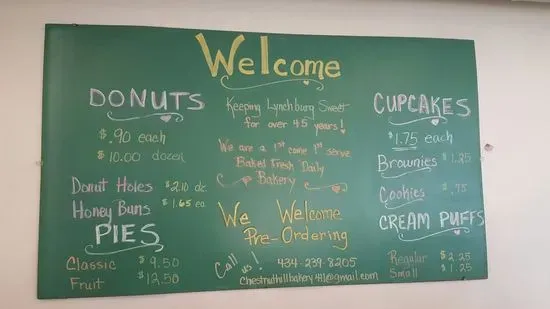 Welcome
DONUTS
$.90 each
$10.00 dozen
Donut Holes $2.10 dz.
Honey Buns $1.65 ea
PIES
Classic $9.50
Fruit $12.50
Keeping Lynchburg Sweet
for over 45 years!
We are a 1st come 1st serve
Baked Fresh Daily
Bakery
We Welcome
Pre-Ordering
Call us! 434-239-8205
chestnuthillbakery41@gmail.com
CUPCAKES
$1.75 each
Brownies $1.25
Cookies $.75
CREAM PUFFS
Regular $2.25
Small $1.25